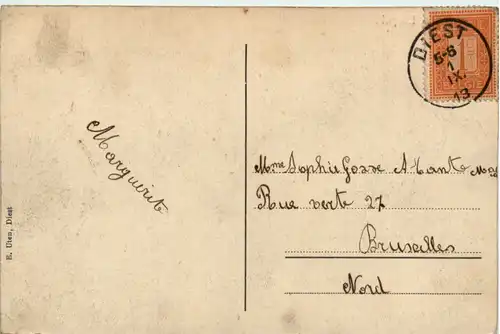 DIEST
5-6
1
IX
13
Marguerite
Mme Sophie Gosse A
Rue verte 27
Bruxelles
Nord
E. Uten, Diest